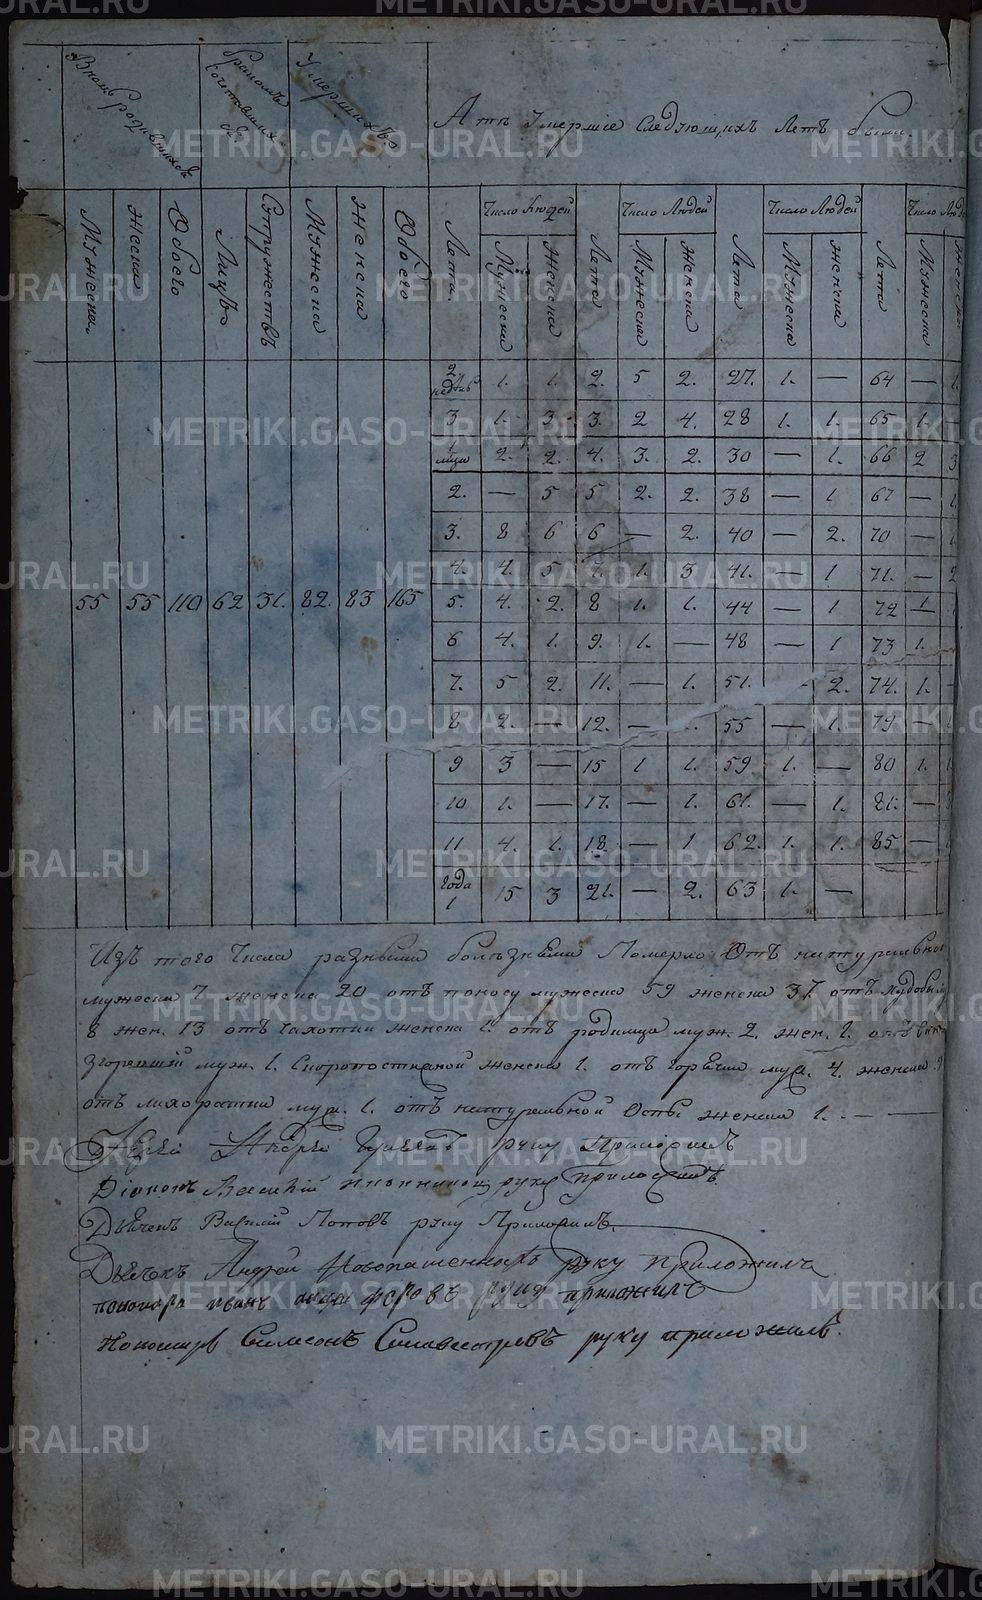 Вномъ родившихся
бракомъ сочетавшихся
Умершихъ
А тѣ Умершіе Следующихъ Летъ были
Число Людей Число Людей Число Людей Число
Мужеска Женска Обоего Лицъ Супружествъ Мужеска Женска Обоего Лета Мужеска Женска Лета Мужеска Женска Лета Мужеска Женска Лета Мужеска Женска
2 недѣль 1. 1. 2. 5 2. 27. 1. — 64 — 1.
3 1. 3 3. 2 4. 28 1. 1. 65 1.
1 мца 2. 2. 4. 3. 2. 30 — 1. 66 2 3
2. — 5 5 2. 2. 38 — 1 67 —
3. 8 6 6 — 2. 40 — 2. 70 —
4. 4. 5 7. 1. 3 41. — 1 71. — 2
55 55 110 62 31. 82. 83 165
5. 4. 2. 8 1. 1. 44 — 1 72 1.
6 4. 1. 9. 1. — 48 — 1 73 1.
7. 5 2. 11. — 1. 51. - 2. 74. 1. —
8 2. — 12. — 1. 55 — 1. 79 —
9 3 — 15 1 1. 59 1. — 80 1. 1.
10 1. — 17. — 1. 61. — 1. 81. —
11 4. 1. 18. — 1 62. 1. 1. 85 —
Года 1 15 3 21. — 2. 63 1. —
Изъ того Числа разными болѣзньми Померло Отъ натуральной
мужеска 7 женска 20 отъ поносу мужеска 59 женска 37. отъ
8 жен. 13 отъ чахотки женска 1. отъ родимца муж. 2. жен. 1.
згоревшій муж. 1. Скоропостижной женска 1. отъ Горячки муж. 4. женска
отъ лихоратки муж. 1. отъ натуральной Оспы женска 1. — —
Іерей Андрей руку Приложилъ
Діаконъ Василій руку приложилъ.
Дьячекъ Василій Поповъ руку Приложилъ.
Дьячекъ Андрей Новопашенныхъ руку приложилъ
пономарь иванъ руку приложилъ
Пономарь Симеонъ Сильвестровъ руку приложилъ.
METRIKI.GASO-URAL.RU